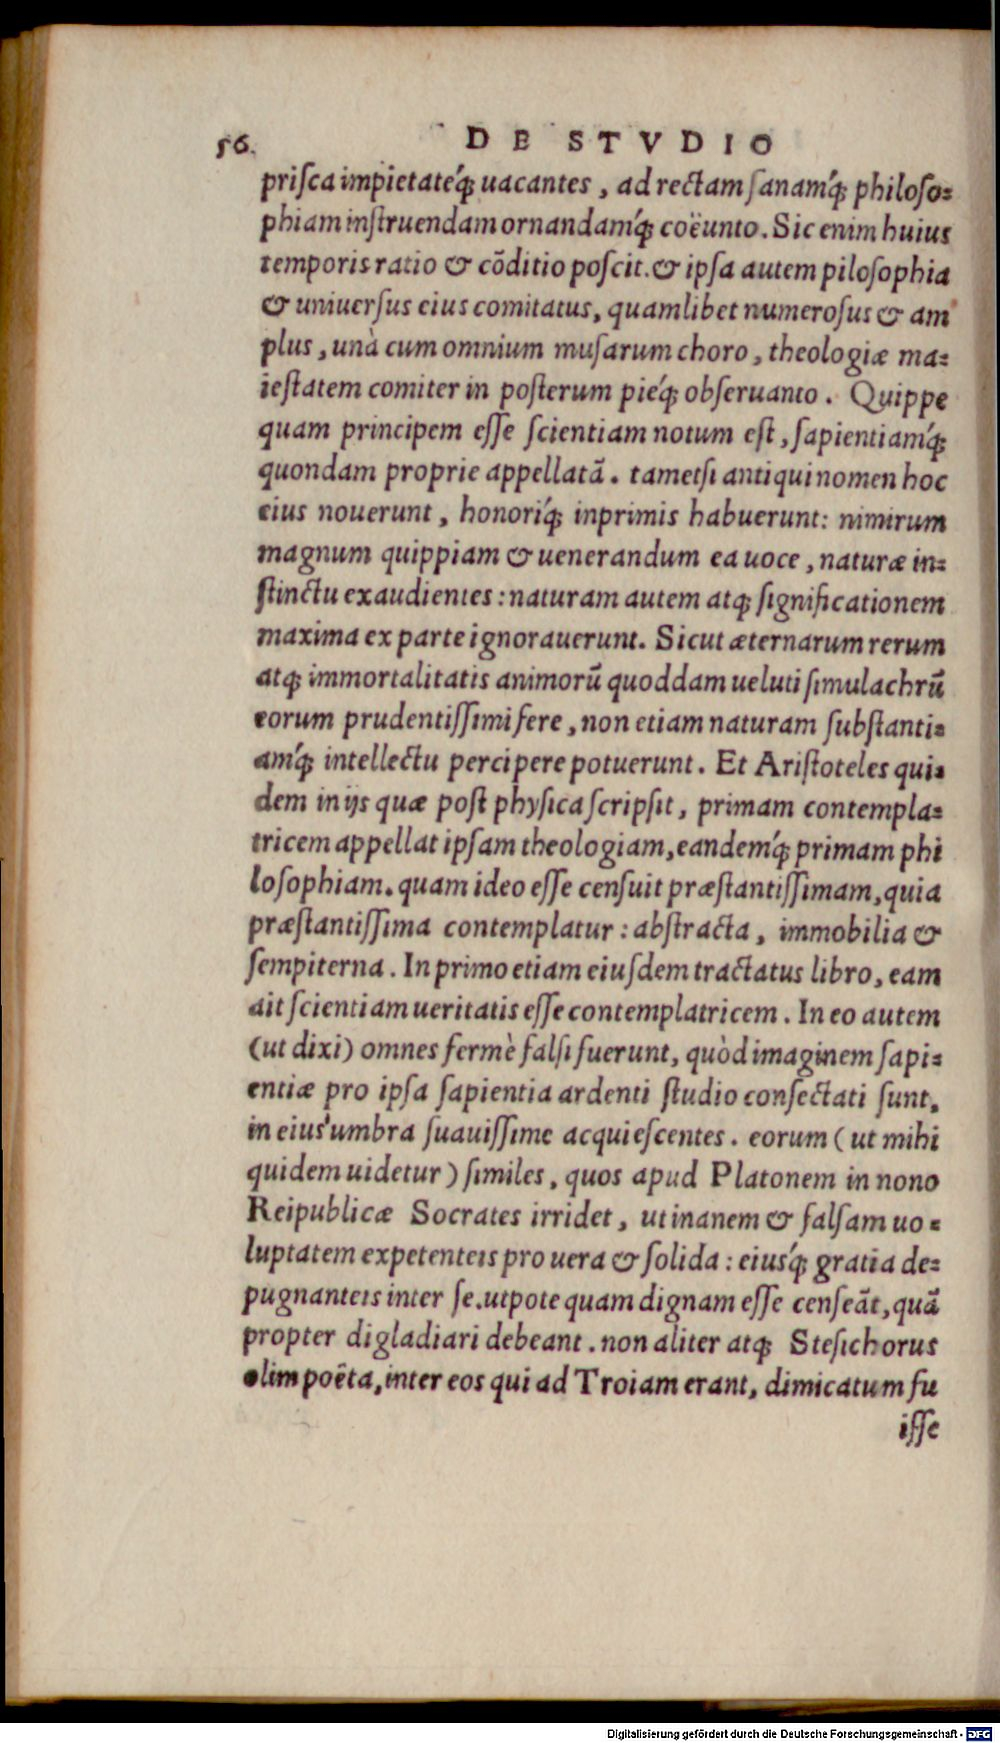 56. DE STVDIO
priſca impietateq́; uacantes, ad rectam ſanamq́; philoſo-
phiam inſtruendam ornandamq́; coëunto. Sic enim huius
temporis ratio & cōditio poſcit. & ipſa autem piloſophia
& uniuerſus eius comitatus, quamlibet numeroſus & am
plus, unà cum omnium muſarum choro, theologiæ ma-
ieſtatem comiter in poſterum pieq́; obſeruanto. Quippe
quam principem eſſe ſcientiam notum eſt, ſapientiamq́;
quondam proprie appellatā. tametſi antiqui nomen hoc
eius nouerunt, honoriq́; inprimis habuerunt: nimirum
magnum quippiam & uenerandum ea uoce, naturæ in-
ſtinctu exaudientes: naturam autem atq; ſignificationem
maxima ex parte ignorauerunt. Sicut æternarum rerum
atq; immortalitatis animorū quoddam ueluti ſimulachrū
eorum prudentiſſimi fere, non etiam naturam ſubſtanti-
amq́; intellectu percipere potuerunt. Et Ariſtoteles qui-
dem in ijs quæ poſt phyſica ſcripſit, primam contempla-
tricem appellat ipſam theologiam, eandemq́; primam phi
loſophiam. quam ideo eſſe cenſuit præſtantiſſimam, quia
præſtantiſſima contemplatur: abſtracta, immobilia &
ſempiterna. In primo etiam eiuſdem tractatus libro, eam
ait ſcientiam ueritatis eſſe contemplatricem. In eo autem
(ut dixi) omnes fermè falſi fuerunt, quòd imaginem ſapi-
entiæ pro ipſa ſapientia ardenti ſtudio conſectati ſunt,
in eius umbra ſuauiſſime acquieſcentes. eorum (ut mihi
quidem uidetur) ſimiles, quos apud Platonem in nono
Reipublicæ Socrates irridet, ut inanem & falſam uo-
luptatem expetenteis pro uera & ſolida: eiusq́; gratia de-
pugnanteis inter ſe. utpote quam dignam eſſe cenſeāt, quā
propter digladiari debeant. non aliter atq; Steſichorus
olim poëta, inter eos qui ad Troiam erant, dimicatum fu
iſſe
Digitalisierung gefördert durch die Deutsche Forschungsgemeinschaft - DFG